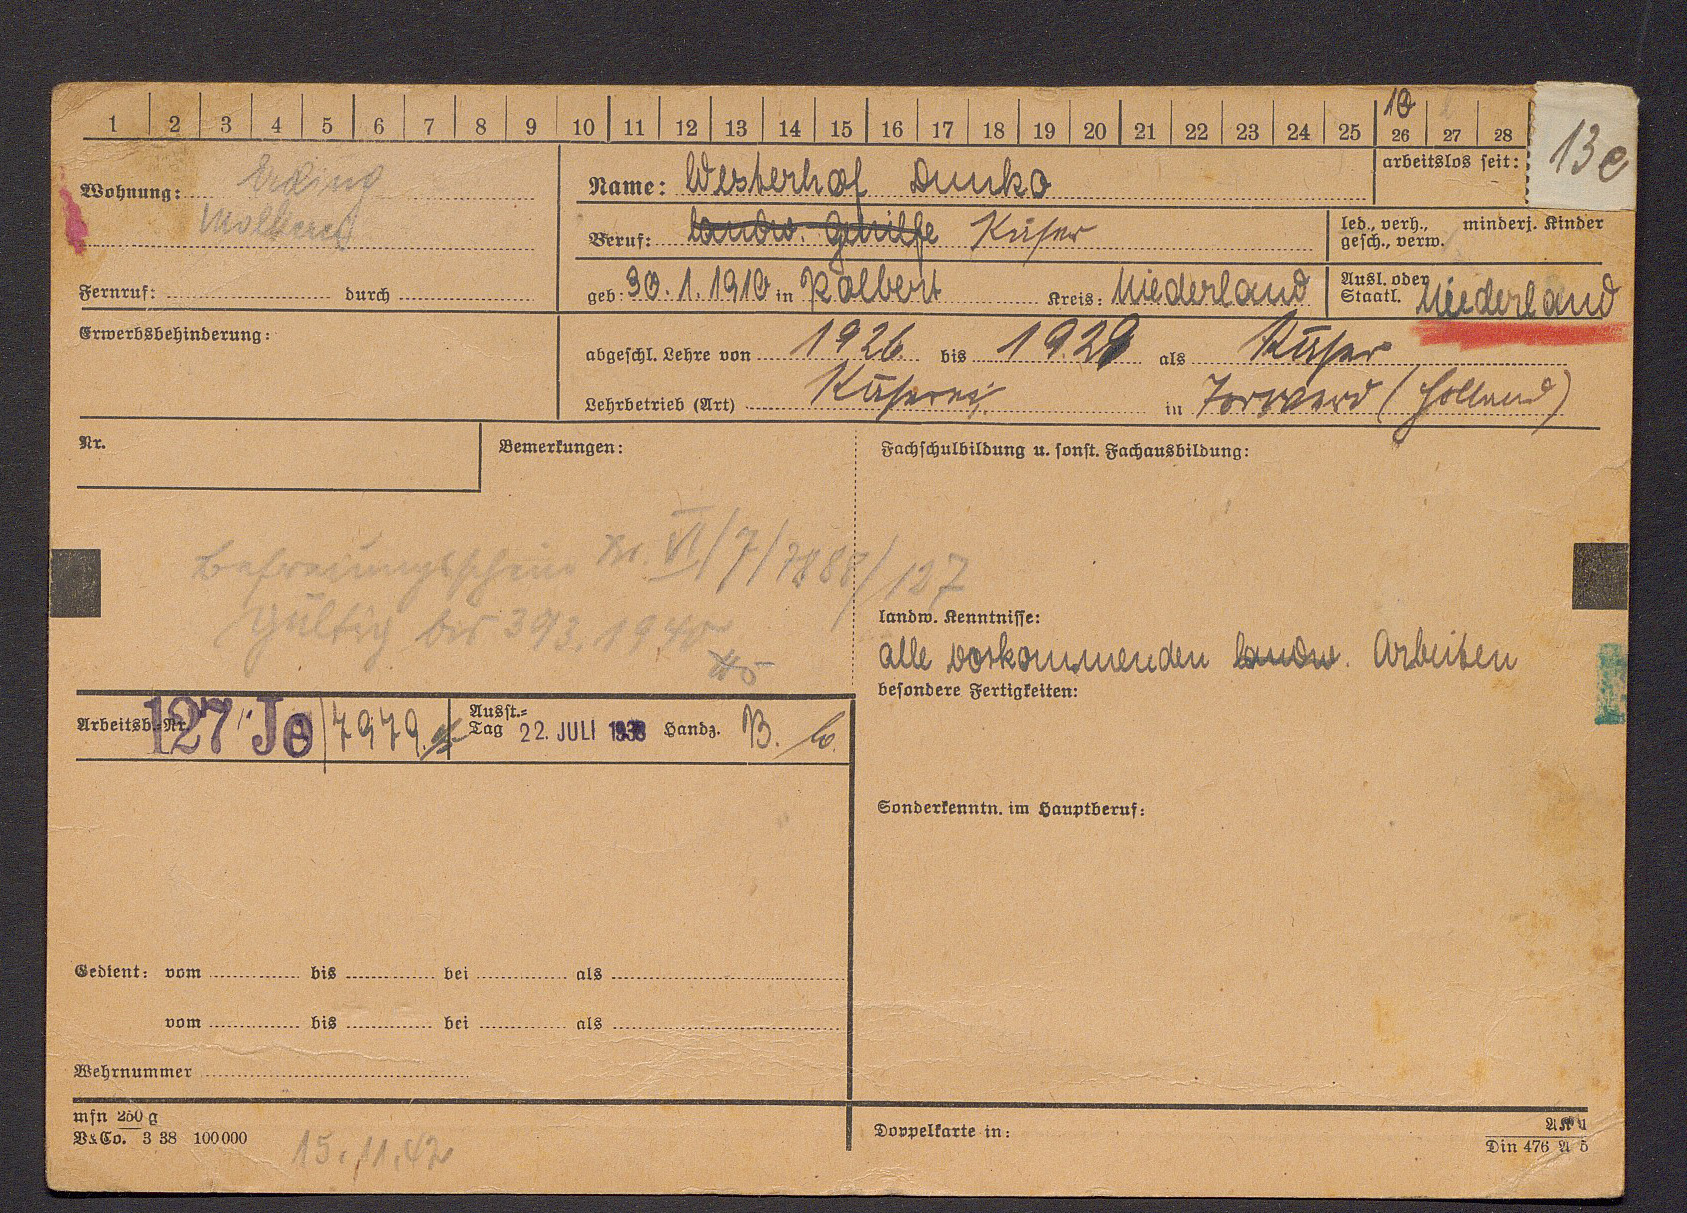 1 2 3 4 5 6 7 8 9 10 11 12 13 14 15 16 17 18 19 20 21 22 23 24 25 26 27 28
10
13e
arbeitslos seit:
Wohnung: Erding
Molkerei
Name: Westerhof Dunko
Beruf: landw. Gehilfe Käser
led., verh., minderj. Kinder
gesch., verw.
Fernruf: durch
geb. 30.1.1910 in Kolbert Kreis: Niederland
Ausl. oder
Staatl. Niederland
Erwerbsbehinderung:
abgeschl. Lehre von 1926 bis 1929 als Käser
Lehrbetrieb (Art) Käserei in (Holland)
Nr.
Bemerkungen:
Fachschulbildung u. sonst. Fachausbildung:
Befreiungsschein Nr. VI/7/7888/127
Gültig bis 1940
landw. Kenntnisse:
alle vorkommenden landw. Arbeiten
besondere Fertigkeiten:
Arbeitsb.-Nr. 127 Jo/7979
Ausst.-
Tag 22. JULI 1938 Handz. B.
Sonderkenntn. im Hauptberuf:
Gedient: vom bis bei als
vom bis bei als
Wehrnummer
mfn 250 g
V&Co. 3 38 100000
15.11.42
Doppelkarte in:
AK 1
Din 476 A 5